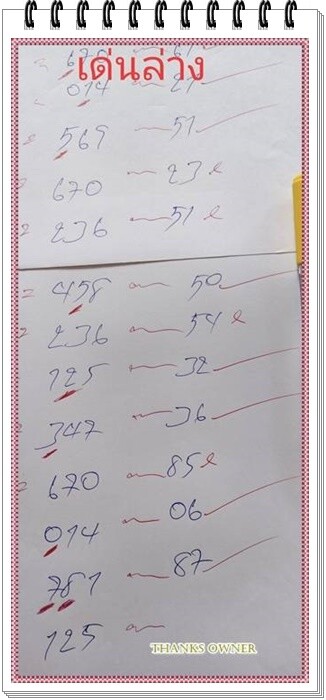 เด่นล่าง
670 61
014 21
569 51
670 23
236 51
458 50
236 54
125 32
347 36
670 85
014 06
781 87
125
THANKS OWNER